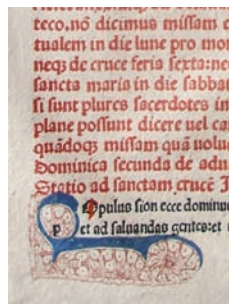 teco.nō dicimus missam c
tualem in die lune pro mor
neqꝫ de cruce feria sexta:nec
sancta maria in die sabba
si sunt plures sacerdotes in
plane possunt dicere vel can
quādoqꝫ missam quā volu
Dominica secunda de adu
Statio ad sanctam cruce J
Opulus sion ecce dominu
p et ad saluandas gentes:et